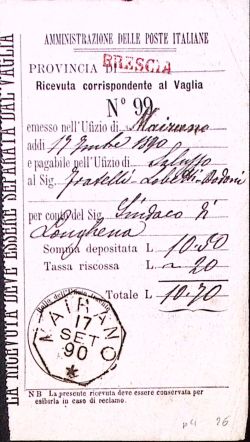 AMMINISTRAZIONE DELLE POSTE ITALIANE
PROVINCIA DI BRESCIA
Ricevuta corrispondente al Vaglia
N° 99
emesso nell'Ufizio di Mairano
addi 17 7mbre 1890
e pagabile nell'Ufizio di Saluzzo
al Sig. Fratelli Lobetti-Bodoni
per conto del Sig. Sindaco di
Longhena
Somma depositata L 10.50
Tassa riscossa L - 20
Totale L 10.70
MAIRANO
17
SET
90
NB La presente ricevuta deve essere conservata per
esibirla in caso di reclamo.
LA RICEVUTA DEVE ESSERE SEPARATA DAL VAGLIA
26